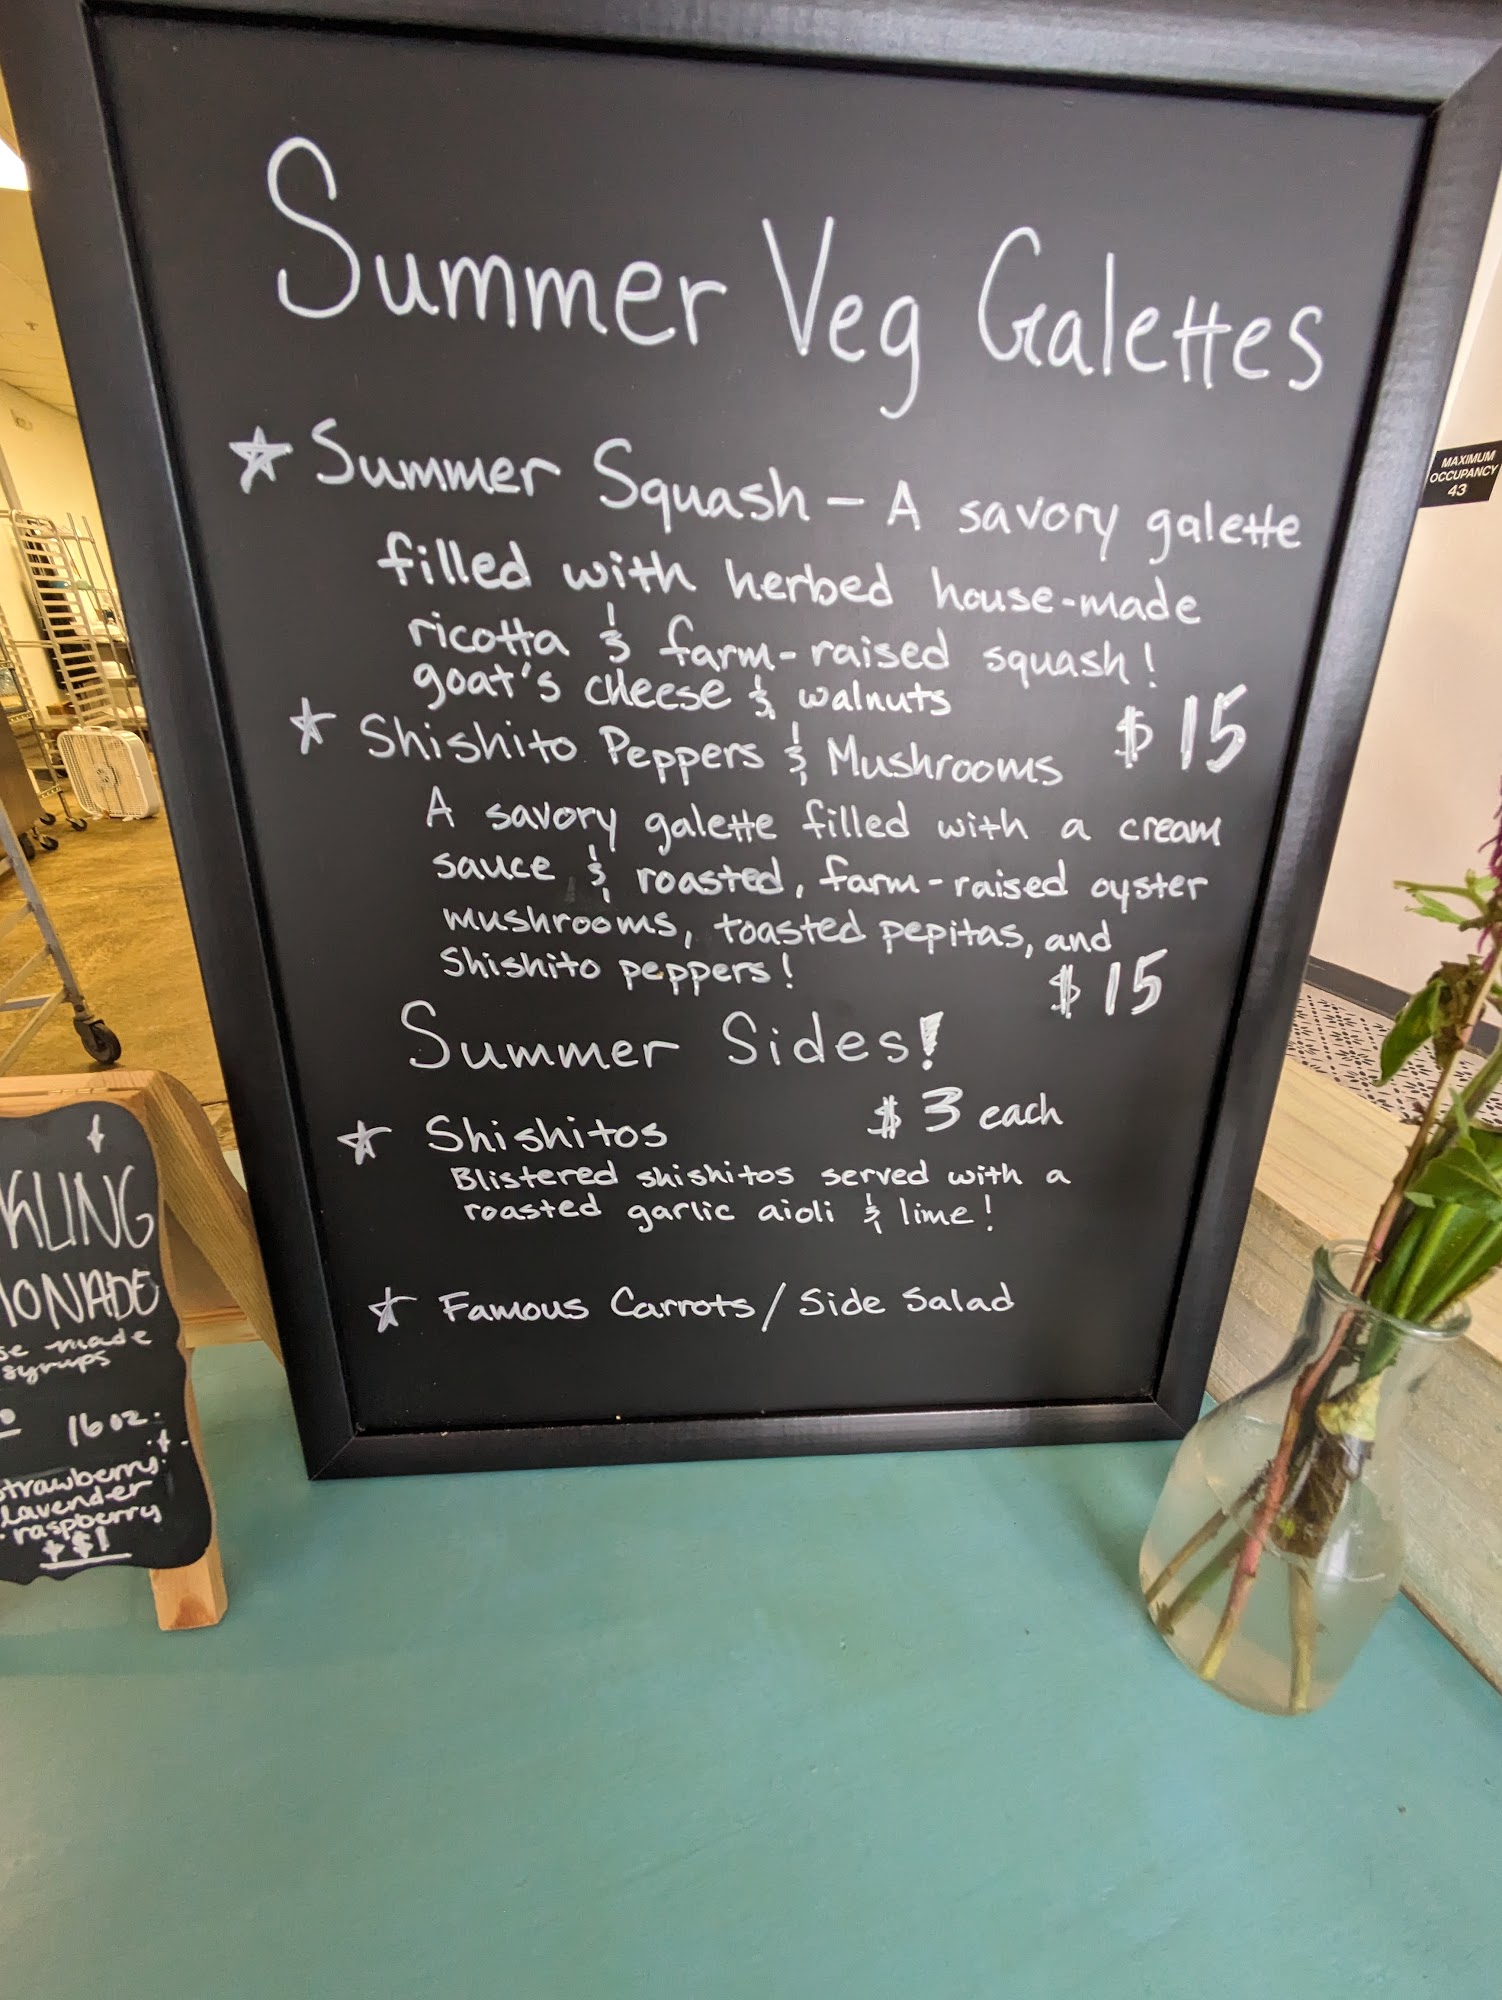 Summer Veg Galettes
☆ Summer Squash – A savory galette
filled with herbed house-made
ricotta & farm-raised squash!
goat's cheese & walnuts
$15
☆ Shishito Peppers & Mushrooms
A savory galette filled with a cream
sauce & roasted, farm-raised oyster
mushrooms, toasted pepitas, and
Shishito peppers!
$15
Summer Sides!
☆ Shishitos $3 each
Blistered shishitos served with a
roasted garlic aioli & lime!
☆ Famous Carrots/Side Salad
MAXIMUM
OCCUPANCY
43
made
syrups
16 oz.
strawberry
lavender
raspberry
+ $1